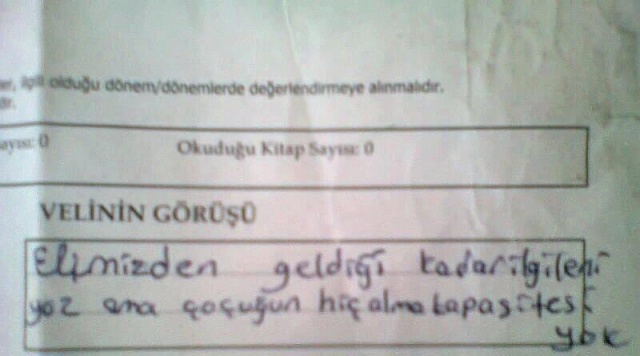 ilgili olduğu dönem/dönemlerde değerlendirmeye alınmalıdır.
dır.
ayısı: 0 Okuduğu Kitap Sayısı: 0
VELİNİN GÖRÜŞÜ
Elimizden geldiği kadar ilgileni
yoz ama çocuğun hiç alma kapasitesi
yok